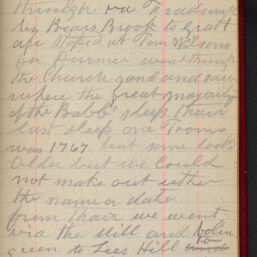 through via Treadswell
by Bears Brook to Graft
age Stoped at Tom Wilsons
for Dinner went through
the Church yard and saw
where the great majority
of the Babbs sleep thair
last sleep one Tooms
was 1767. but some looks
older but we could
not make out either
the name or date
from thair we went
via the Mill and bolin
green to Lees Hill